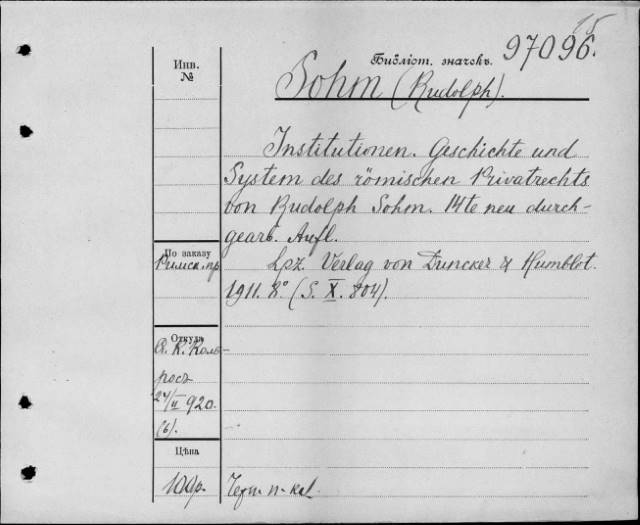 15
Инв.
№
Библіот. значекъ.
97096.
Sohm (Rudolph).
Institutionen. Geschichte und
System des römischen Privatrechts
von Rudolph Sohm. 14te neu durch-
gearb. Aufl.
Lpz. Verlag von Duncker & Humblot.
1911. 8° (S. X. 804).
По заказу
Римск. пр
Откуда
А. К.
24/II 920.
(6).
Цѣна
100р.